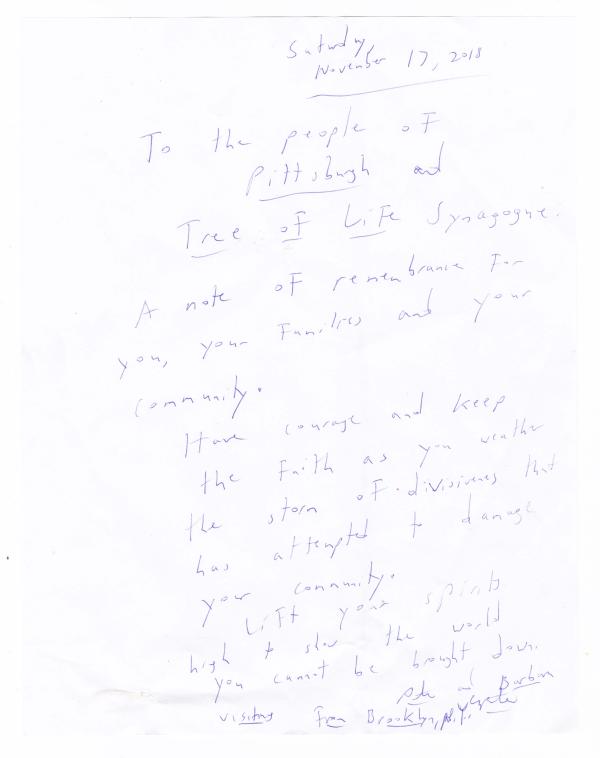 Saturday,
November 17, 2018
To the people of
Pittsburgh and
Tree of Life Synagogue.
A note of remembrance for
you, your Families and your
community.
Have courage and keep
the Faith as you weather
the storm of divisiveness that
has attempted to damage
your community.
Lift your spirits
high to show the world
you cannot be brought down.
and Barbara
visiting From Brooklyn, N.Y.